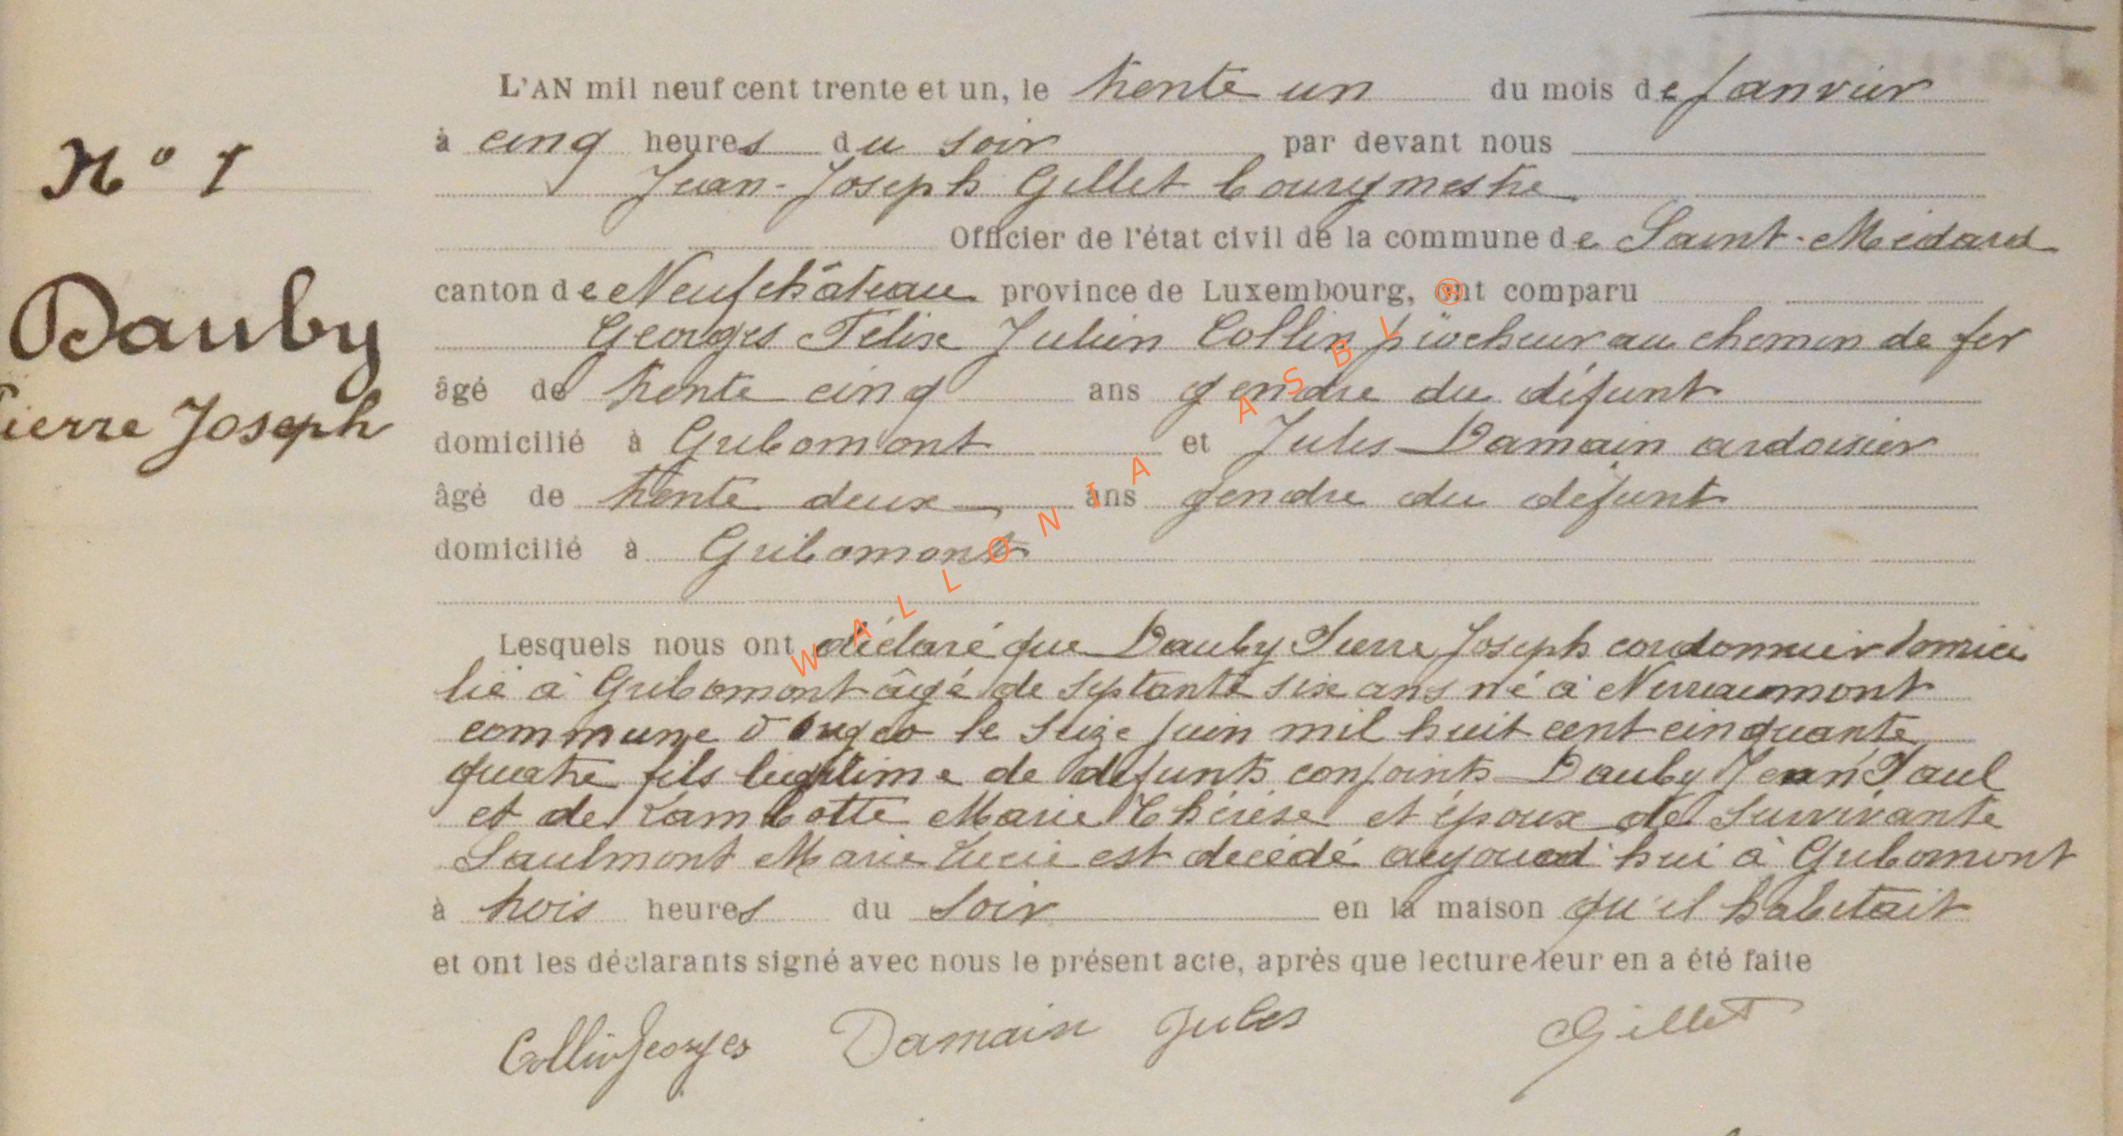 N° 1
Dauby
Pierre Joseph
L'AN mil neuf cent trente et un, le trente un du mois de Janvier
à cinq heures du soir par devant nous
Jean-Joseph Gillet bourgmestre
Officier de l'état civil de la commune de Saint-Médard
canton de Neufchâteau province de Luxembourg, ont comparu
Georges Félix Julien Collin piocheur au chemin de fer
âgé de trente cinq ans gendre du défunt
domicilié à Gribomont et Jules Damain ardoisier
âgé de trente deux ans gendre du défunt
domicilié à Gribomont
Lesquels nous ont déclaré que Dauby Pierre Joseph cordonnier domici
lié à Gribomont âgé de septante six ans né à Nivraumont
commune d'Orgeo le seize juin mil huit cent cinquante
quatre fils légitime de défunts conjoints Dauby Jean Paul
et de Lambotte Marie Thérèse et époux de survivante
Saulmont Marie Lucie est décédé aujourd'hui à Gribomont
à trois heures du soir en la maison qu'il habitait
et ont les déclarants signé avec nous le présent acte, après que lecture leur en a été faite
Collin Georges Damain Jules Gillet
WALLONIA ASBL ®